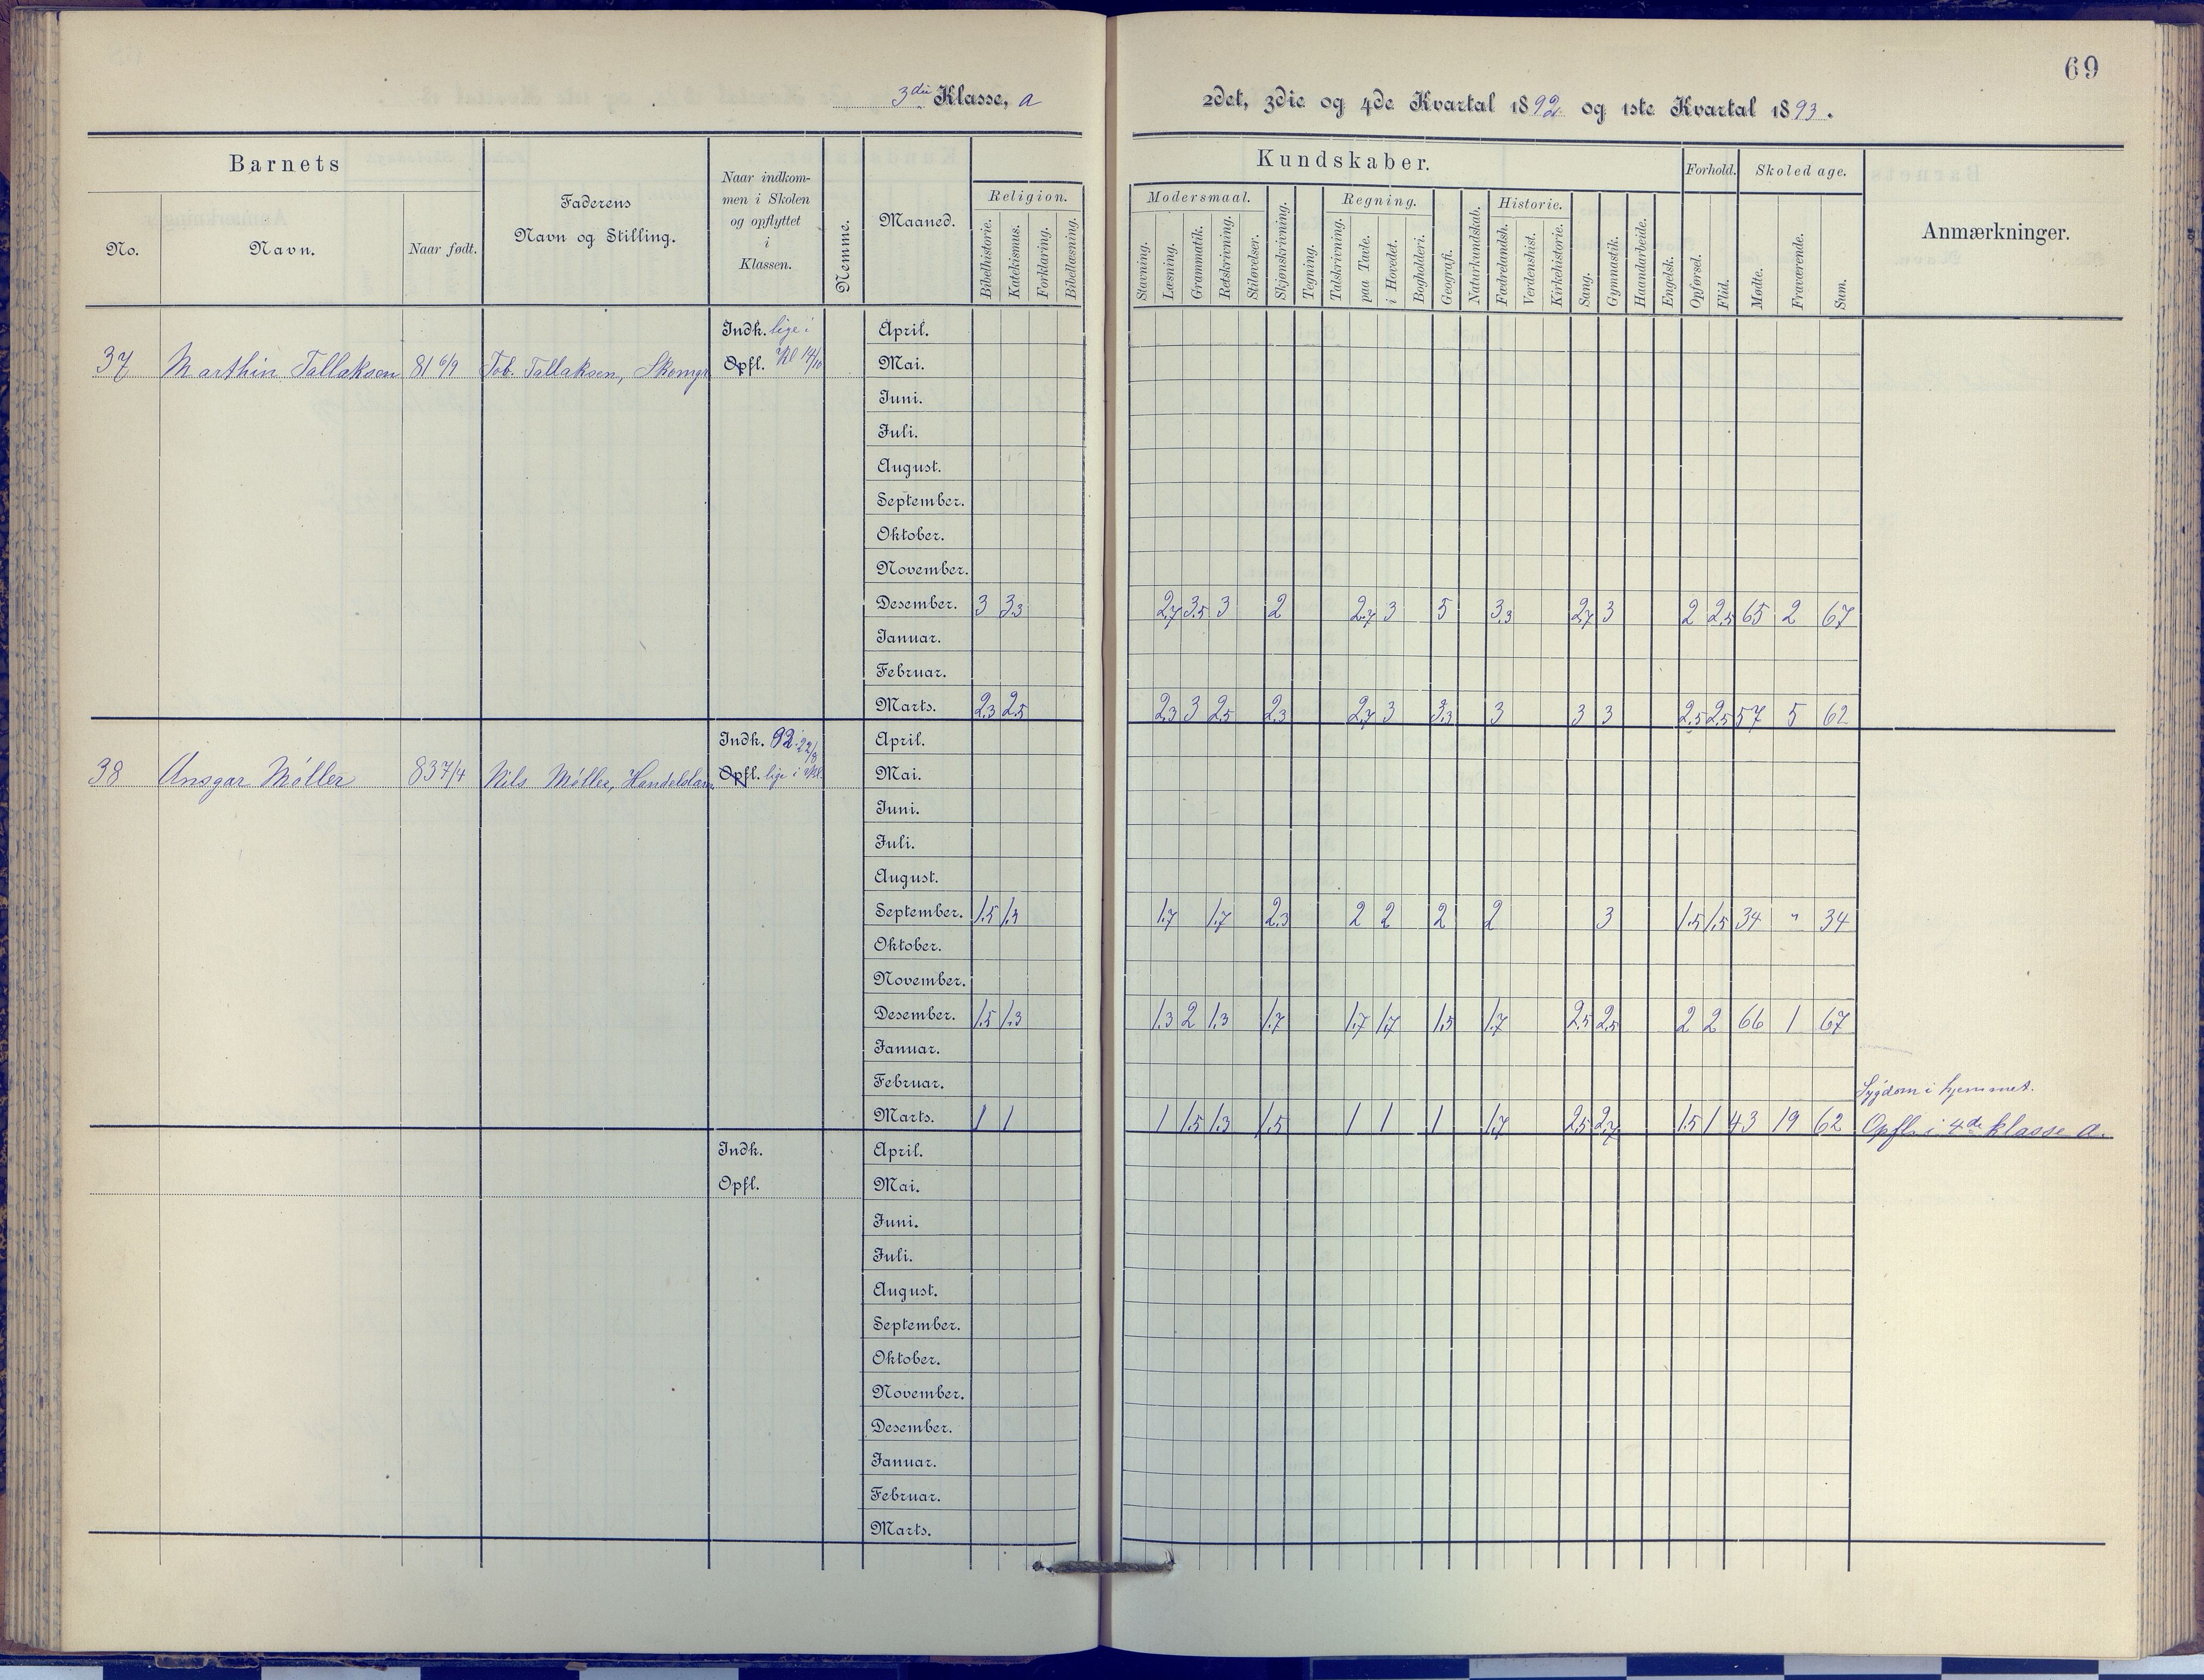 69
3die Klasse, a
2det, 3die og 4de Kvartal 1892 og 1ste Kvartal 1893.
Barnets
No.
Navn.
Naar født.
Faderens
Navn og Stilling.
Naar indkom-
men i Skolen
og opflyttet
i
Klassen.
Nemme.
Maaned.
Religion.
Bibelhistorie.
Katekismus.
Forklaring.
Bibellæsning.
Kundskaber.
Modersmaal.
Stavning.
Læsning.
Grammatik.
Retskrivning.
Stiløvelser.
Skjønskrivning.
Tegning.
Regning.
Talskrivning.
paa Tavle.
i Hovedet.
Bogholderi.
Geografi.
Naturkundskab.
Historie.
Fædrelandsh.
Verdenshist.
Kirkehistorie.
Sang.
Gymnastik.
Haandarbeide.
Engelsk.
Forhold.
Opførsel.
Flid.
Skoledage.
Mødte.
Fraværende.
Sum.
Anmærkninger.
37 Marthin Tallaksen 81 6/9 Tob. Tallaksen, Skomgr
Indk. lige i
Opfl. Kl 14/10
April.
Mai.
Juni.
Juli.
August.
September.
Oktober.
November.
Desember. 3 3.3 2.7 3.5 3 2 2.7 3 5 3.3 2.7 3 2 2.5 65 2 67
Januar.
Februar.
Marts. 2.3 2.5 2.3 3 2.5 2.3 2.7 3 3.3 3 3 3 2.5 2.5 57 5 62
38 Ansgar Móller 83 7/4 Nils Móller, Handelslam.
Indk. 92 22/8
Opfl. lige i Kl.
April.
Mai.
Juni.
Juli.
August.
September. 1.5 1.3 1.7 1.7 2.3 2 2 2 2 3 1.5 1.5 34 " 34
Oktober.
November.
Desember. 1.5 1.3 1.3 2 1.3 1.7 1.7 1.7 1.5 1.7 2.5 2.5 2 2 66 1 67
Januar.
Februar.
Sygdom i hjemmet.
Marts. 1 1 1 1.5 1.3 1.5 1 1 1 1.7 2.5 2.7 1.5 1 43 19 62 Opfl. i 4de klasse a.
Indk.
Opfl.
April.
Mai.
Juni.
Juli.
August.
September.
Oktober.
November.
Desember.
Januar.
Februar.
Marts.